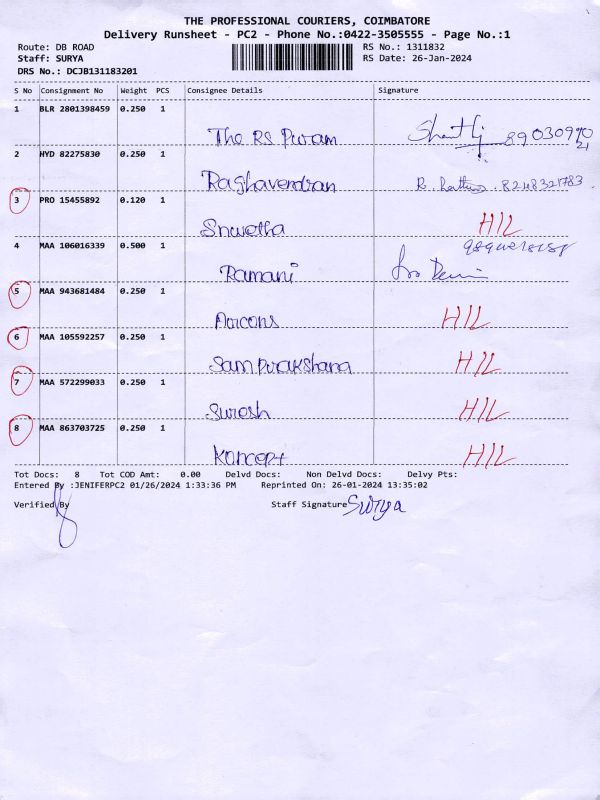 THE PROFESSIONAL COURIERS, COIMBATORE
Delivery Runsheet - PC2 - Phone No.:0422-3505555 - Page No.:1
Route: DB ROAD RS No.: 1311832
Staff: SURYA RS Date: 26-Jan-2024
DRS No.: DCJB131183201
S No Consignment No Weight PCS Consignee Details Signature
1 BLR 2801398459 0.250 1
The RS Puram
2 HYD 82275830 0.250 1
Raghavendran R. 8248321783
3 PRO 15455892 0.120 1
Snwetha H/L
4 MAA 106016339 0.500 1
Ramani
5 MAA 943681484 0.250 1
H/L
6 MAA 105592257 0.250 1
Sampurakshana H/L
7 MAA 572299033 0.250 1
Suresh H/L
8 MAA 863703725 0.250 1
Koncept H/L
Tot Docs: 8 Tot COD Amt: 0.00 Delvd Docs: Non Delvd Docs: Delvy Pts:
Entered By :JENIFERPC2 01/26/2024 1:33:36 PM Reprinted On: 26-01-2024 13:35:02
Verified By Staff Signature Surya